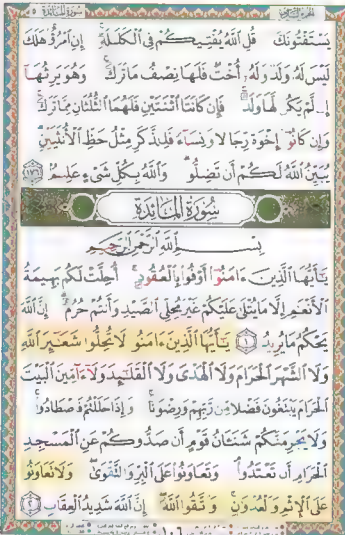 سورة المائدة ٥
يَسْتَفْتُونَكَ قُلِ اللَّهُ يُفْتِيكُمْ فِي الْكَلَالَةِ إِنِ امْرُؤٌا هَلَكَ
لَيْسَ لَهُ وَلَدٌ وَلَهُ أُخْتٌ فَلَهَا نِصْفُ مَا تَرَكَ وَهُوَ يَرِثُهَا
إِن لَّمْ يَكُن لَّهَا وَلَدٌ فَإِن كَانَتَا اثْنَتَيْنِ فَلَهُمَا الثُّلُثَانِ مِمَّا تَرَكَ
وَإِن كَانُوا إِخْوَةً رِّجَالًا وَنِسَاءً فَلِلذَّكَرِ مِثْلُ حَظِّ الْأُنثَيَيْنِ
يُبَيِّنُ اللَّهُ لَكُمْ أَن تَضِلُّوا وَاللَّهُ بِكُلِّ شَيْءٍ عَلِيمٌ ١٧٦
سُورَةُ الْمَائِدَةِ
بِسْمِ اللَّهِ الرَّحْمَٰنِ الرَّحِيمِ
يَٰأَيُّهَا الَّذِينَ ءَامَنُوا أَوْفُوا بِالْعُقُودِ أُحِلَّتْ لَكُم بَهِيمَةُ
الْأَنْعَٰمِ إِلَّا مَا يُتْلَىٰ عَلَيْكُمْ غَيْرَ مُحِلِّي الصَّيْدِ وَأَنتُمْ حُرُمٌ إِنَّ اللَّهَ
يَحْكُمُ مَا يُرِيدُ ١ يَٰأَيُّهَا الَّذِينَ ءَامَنُوا لَا تُحِلُّوا شَعَٰئِرَ اللَّهِ
وَلَا الشَّهْرَ الْحَرَامَ وَلَا الْهَدْيَ وَلَا الْقَلَٰئِدَ وَلَا ءَامِّينَ الْبَيْتَ
الْحَرَامَ يَبْتَغُونَ فَضْلًا مِّن رَّبِّهِمْ وَرِضْوَٰنًا وَإِذَا حَلَلْتُمْ فَاصْطَادُوا
وَلَا يَجْرِمَنَّكُمْ شَنَـَٔانُ قَوْمٍ أَن صَدُّوكُمْ عَنِ الْمَسْجِدِ
الْحَرَامِ أَن تَعْتَدُوا وَتَعَاوَنُوا عَلَى الْبِرِّ وَالتَّقْوَىٰ وَلَا تَعَاوَنُوا
عَلَى الْإِثْمِ وَالْعُدْوَٰنِ وَاتَّقُوا اللَّهَ إِنَّ اللَّهَ شَدِيدُ الْعِقَابِ ٢
١٠٦